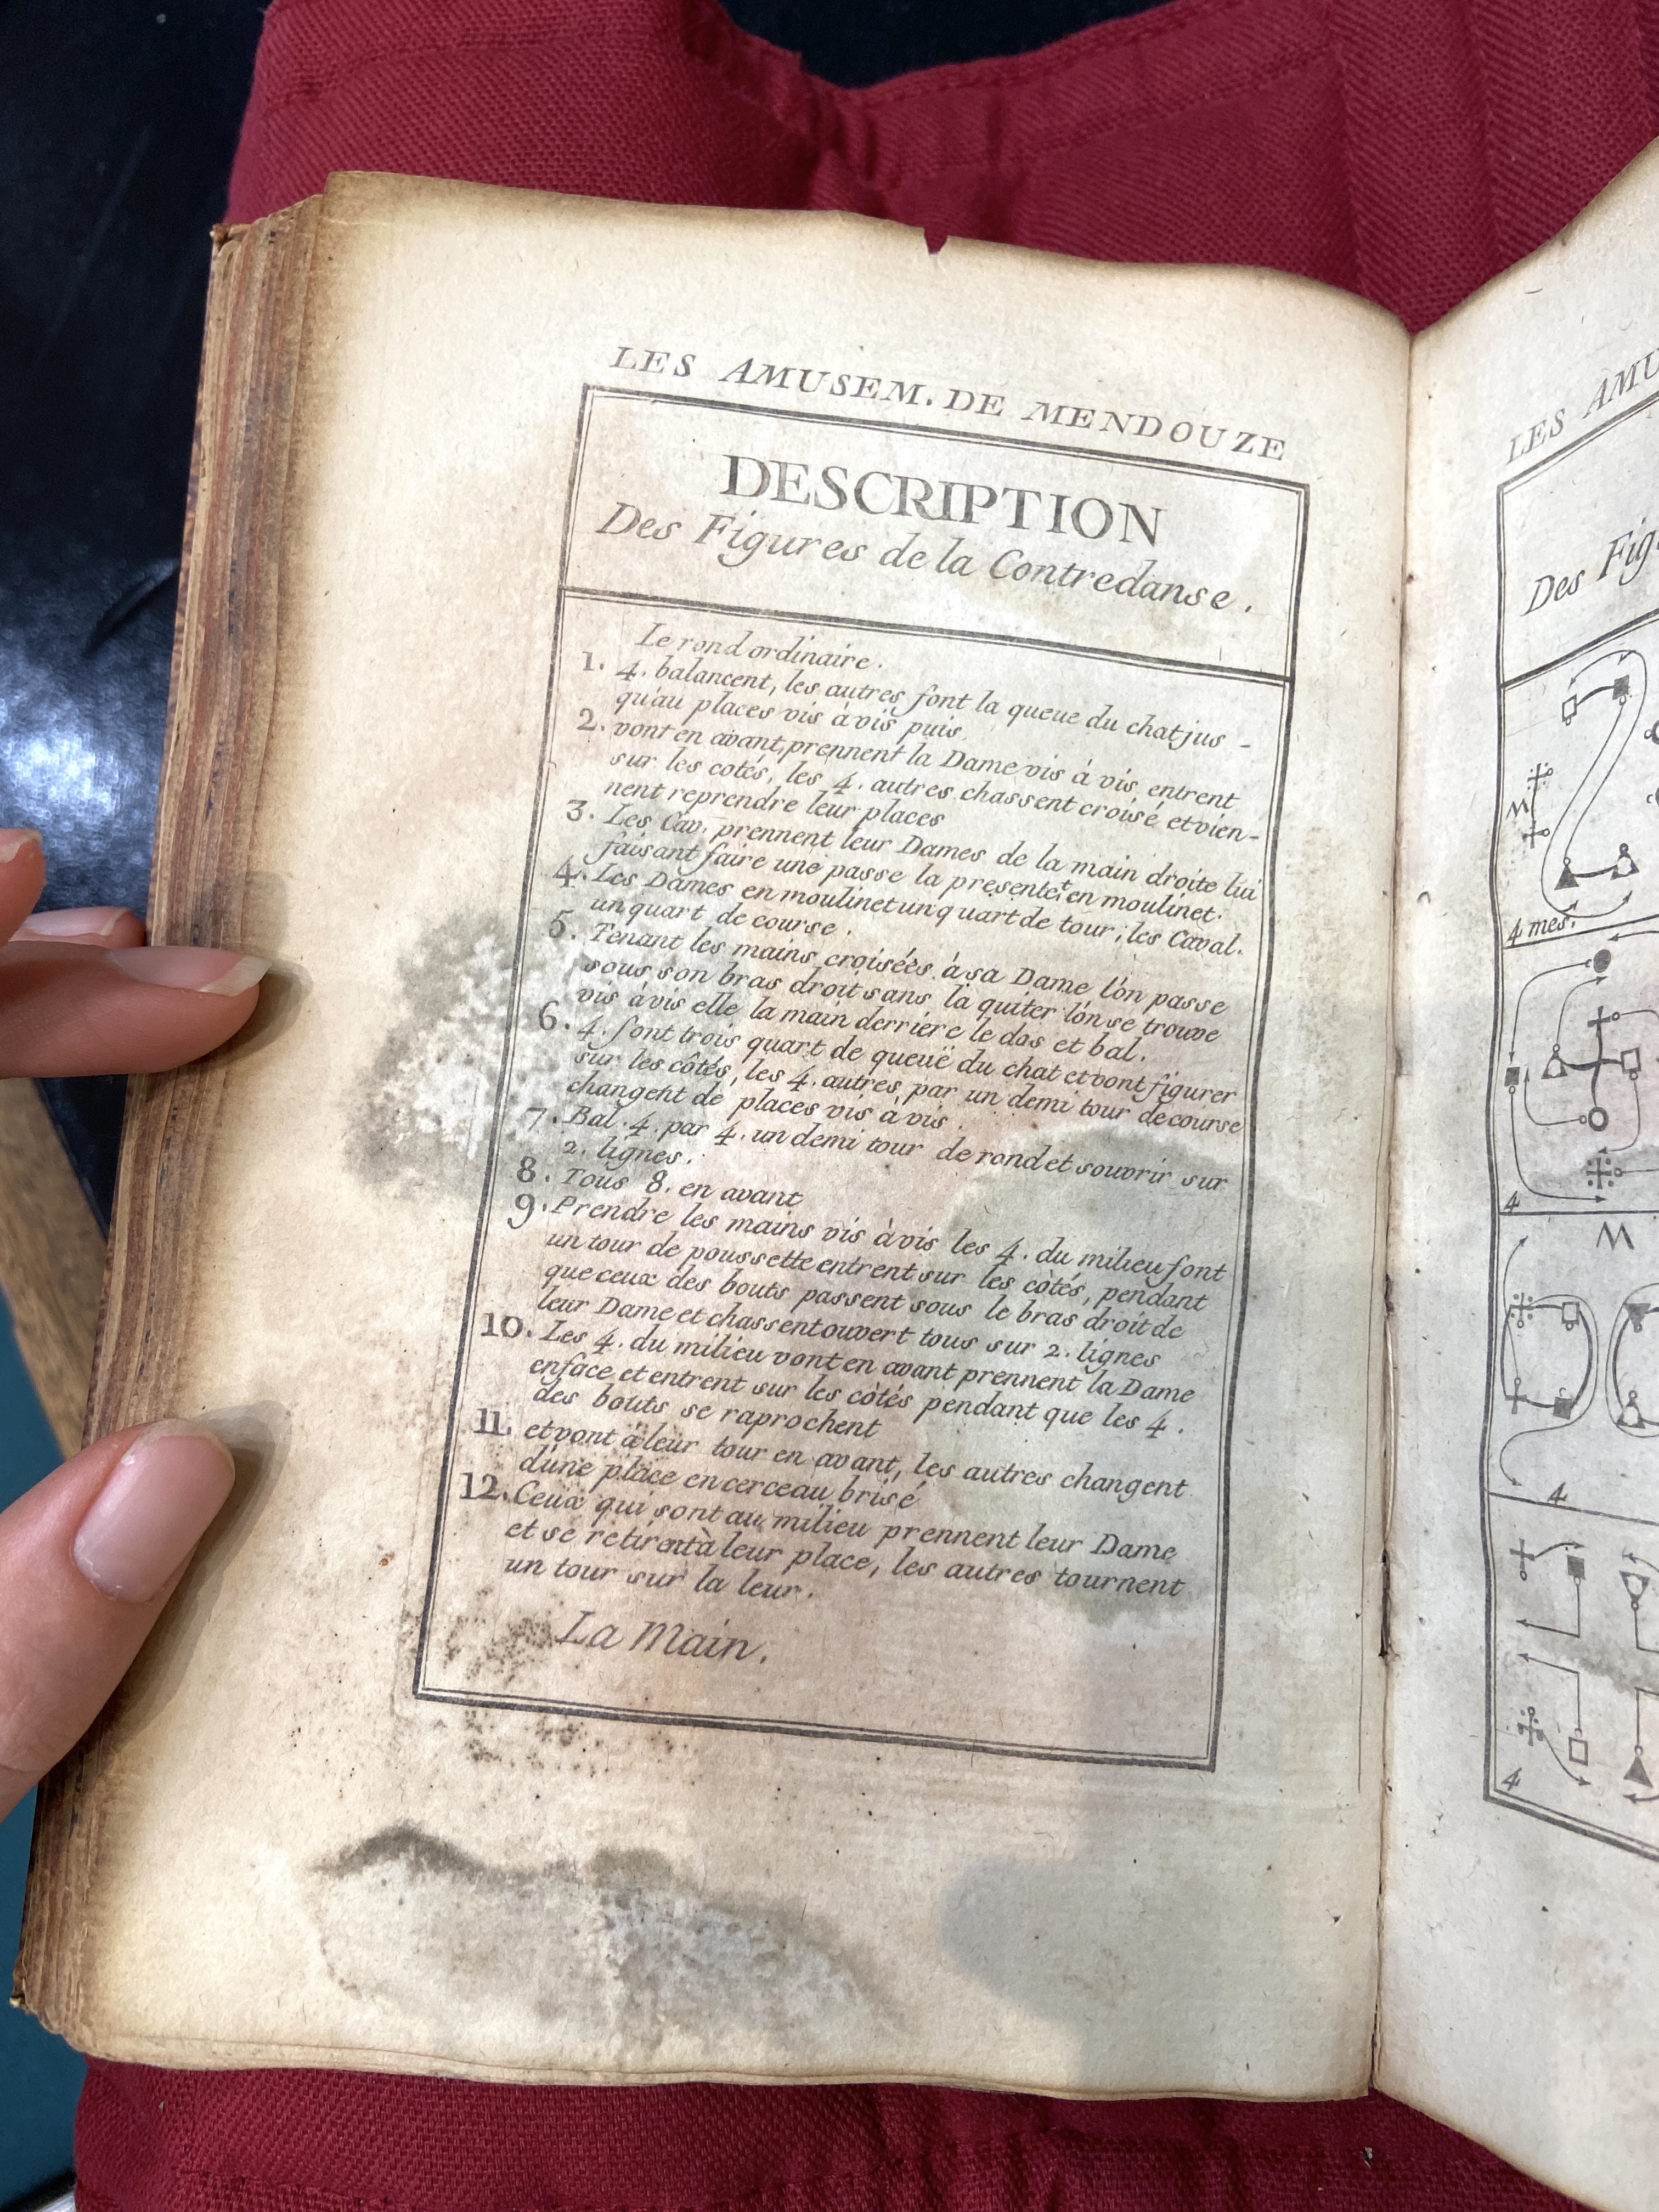 LES AMUSEM. DE MENDOUZE
DESCRIPTION
Des Figures de la Contredanse.
Le rond ordinaire.
1. 4. balancent, les autres font la queue du chat jus-
qu'au places vis à vis puis
2. vont en avant, prennent la Dame vis à vis, entrent
sur les cotés, les 4. autres chassent croisé et vien-
nent reprendre leur places
3. Les Cav. prennent leur Dames de la main droite lui
faisant faire une passe la presentet en moulinet.
4. Les Dames en moulinet un quart de tour; les Caval.
un quart de course.
5. Tenant les mains croisées à sa Dame l'on passe
sous son bras droit sans la quiter l'on se trouve
vis à vis elle la main derriere le dos et bal.
6. 4. font trois quart de queuë du chat et vont figurer
sur les côtés, les 4. autres par un demi tour de course
changent de places vis à vis.
7. Bal. 4. par 4. un demi tour de rond et souvrir sur
2. lignes.
8. Tous 8. en avant
9. Prendre les mains vis à vis les 4. du milieu font
un tour de poussette entrent sur les côtés, pendant
que ceux des bouts passent sous le bras droit de
leur Dame et chassent ouvert tous sur 2. lignes
10. Les 4. du milieu vont en avant prennent la Dame
enface et entrent sur les côtés pendant que les 4.
des bouts se raprochent
11. et vont à leur tour en avant, les autres changent
d'une place en cerceau brisé
12. Ceux qui sont au milieu prennent leur Dame
et se retirent à leur place, les autres tournent
un tour sur la leur.
La Main.
LES AMU
Des Fig
4 mes.
4
4
4